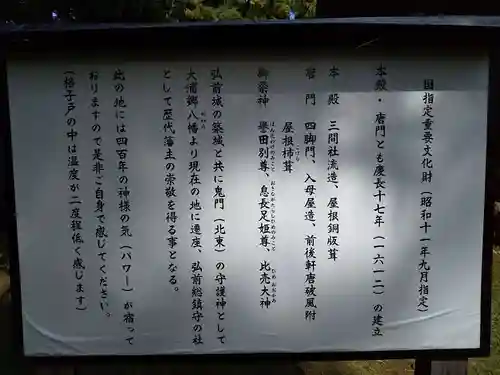 国指定重要文化財（昭和十一年九月指定）
本殿・唐門とも慶長十七年（一六一二）の建立
本殿　三間社流造、屋根銅版葺
唐門　四脚門、入母屋造、前後軒唐破風附
屋根杮葺
こけら
御祭神　誉田別尊、息長足姫尊、比売大神
ほんだわけのみこと　おきながたらしひめのみこと　ひめおおかみ
弘前城の築城と共に鬼門（北東）の守護神として
大浦郷八幡より現在の地に遷座、弘前総鎮守の社
として歴代藩主の崇敬を得る事となる。
此の地には四百年の神様の気（パワー）が宿って
おりますので是非ご自身で感じてください。
（格子戸の中は温度が二度程低く感じます）